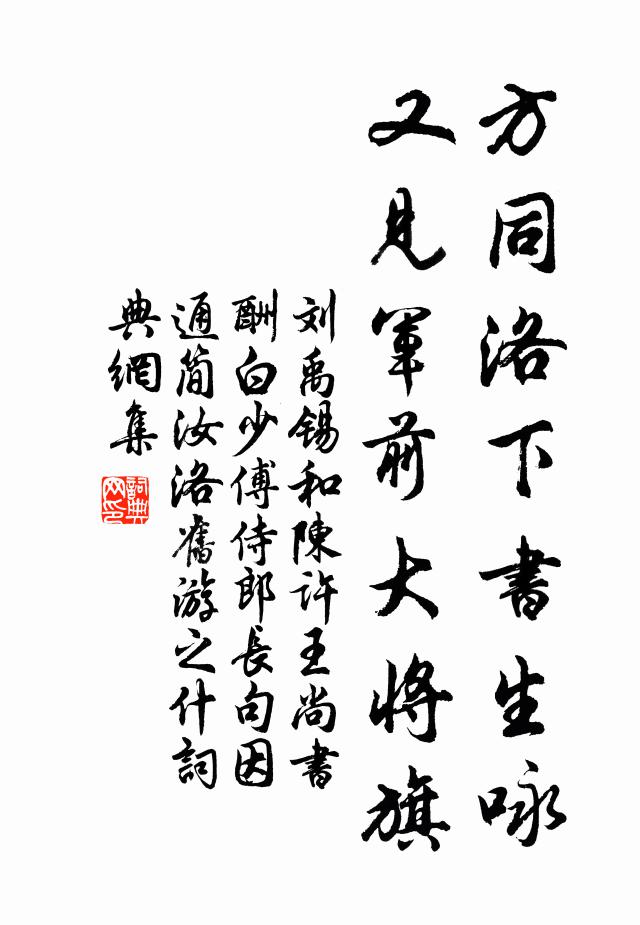 方同洛下書生咏
又見軍前大將旗
刘禹锡和陳許王尚書
酬白少傅侍郎長句因
通简汝洛舊游之什詞
典網集
詞典
网印